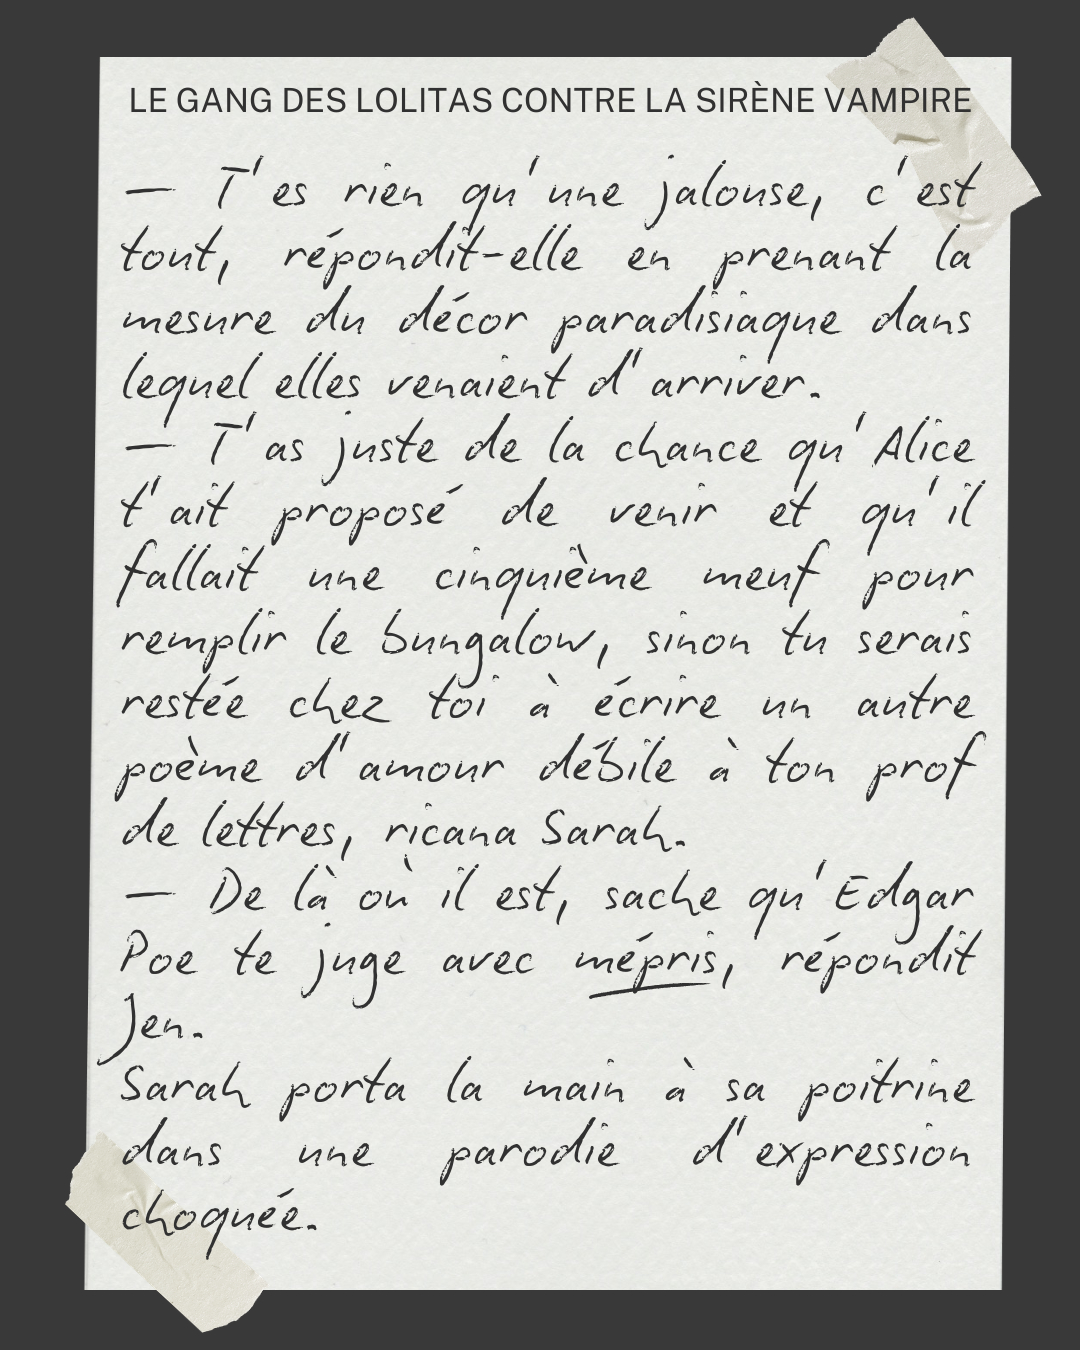 LE GANG DES LOLITAS CONTRE LA SIRÈNE VAMPIRE
— T'es rien qu'une jalouse, c'est
tout, répondit-elle en prenant la
mesure du décor paradisiaque dans
lequel elles venaient d'arriver.
— T'as juste de la chance qu'Alice
t'ait proposé de venir et qu'il
fallait une cinquième meuf pour
remplir le bungalow, sinon tu serais
restée chez toi à écrire un autre
poème d'amour débile à ton prof
de lettres, ricana Sarah.
— De là où il est, sache qu'Edgar
Poe te juge avec mépris, répondit
Jen.
Sarah porta la main à sa poitrine
dans une parodie d'expression
choquée.